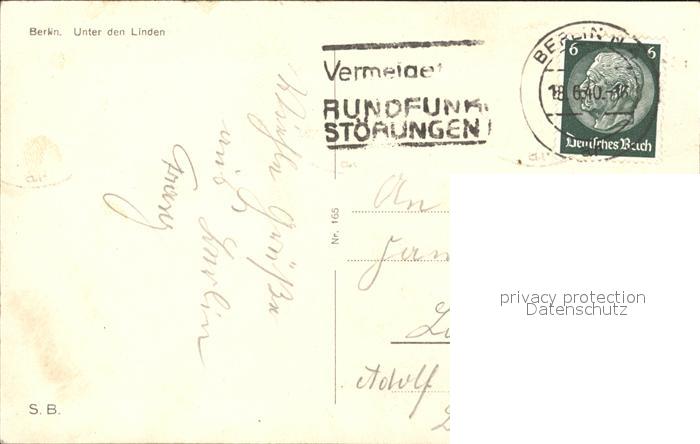 Berlin. Unter den Linden
Vermeidet
RUNDFUNK
STÖRUNGEN!
BERLIN N
18.6.40.-18
6 6
Deutsches Reich
Grüße
aus Berlin
Franz
Nr. 165
An
Fam
Adolf
S. B.
privacy protection
Datenschutz